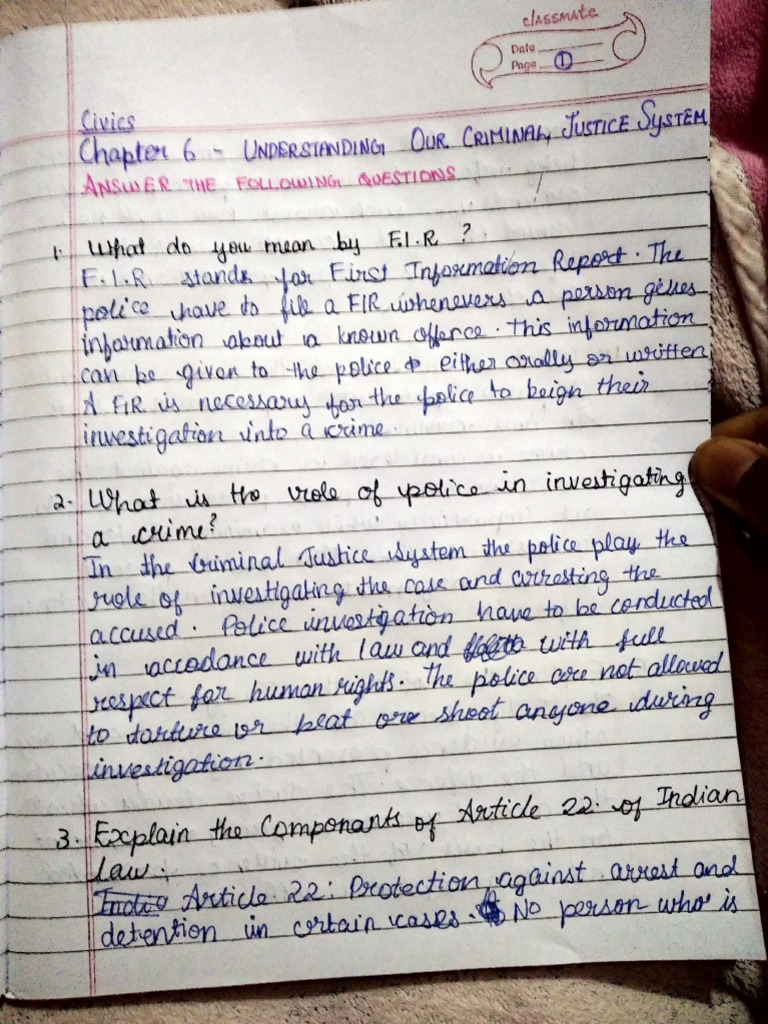 classmate
Date
Page 1
Civics
Chapter 6 - UNDERSTANDING OUR CRIMINAL JUSTICE SYSTEM
ANSWER THE FOLLOWING QUESTIONS
1. What do you mean by F.I.R ?
F.I.R. stands for First Information Report. The
police have to file a FIR whenevers a person gives
information about a known offence. This information
can be given to the police either orally or written
A FIR is necessary for the police to beign their
investigation into a crime.
2. What is the role of police in investigating
a crime?
In the Criminal Justice System the police play the
role of investigating the case and arresting the
accused. Police investigation have to be conducted
in accodance with law and with full
respect for human rights. The police are not allowed
to torture or beat or shoot anyone during
investigation.
3. Explain the Componants of Article 22 of Indian
Law.
Article 22: Protection against arrest and
detention in certain cases. No person who is